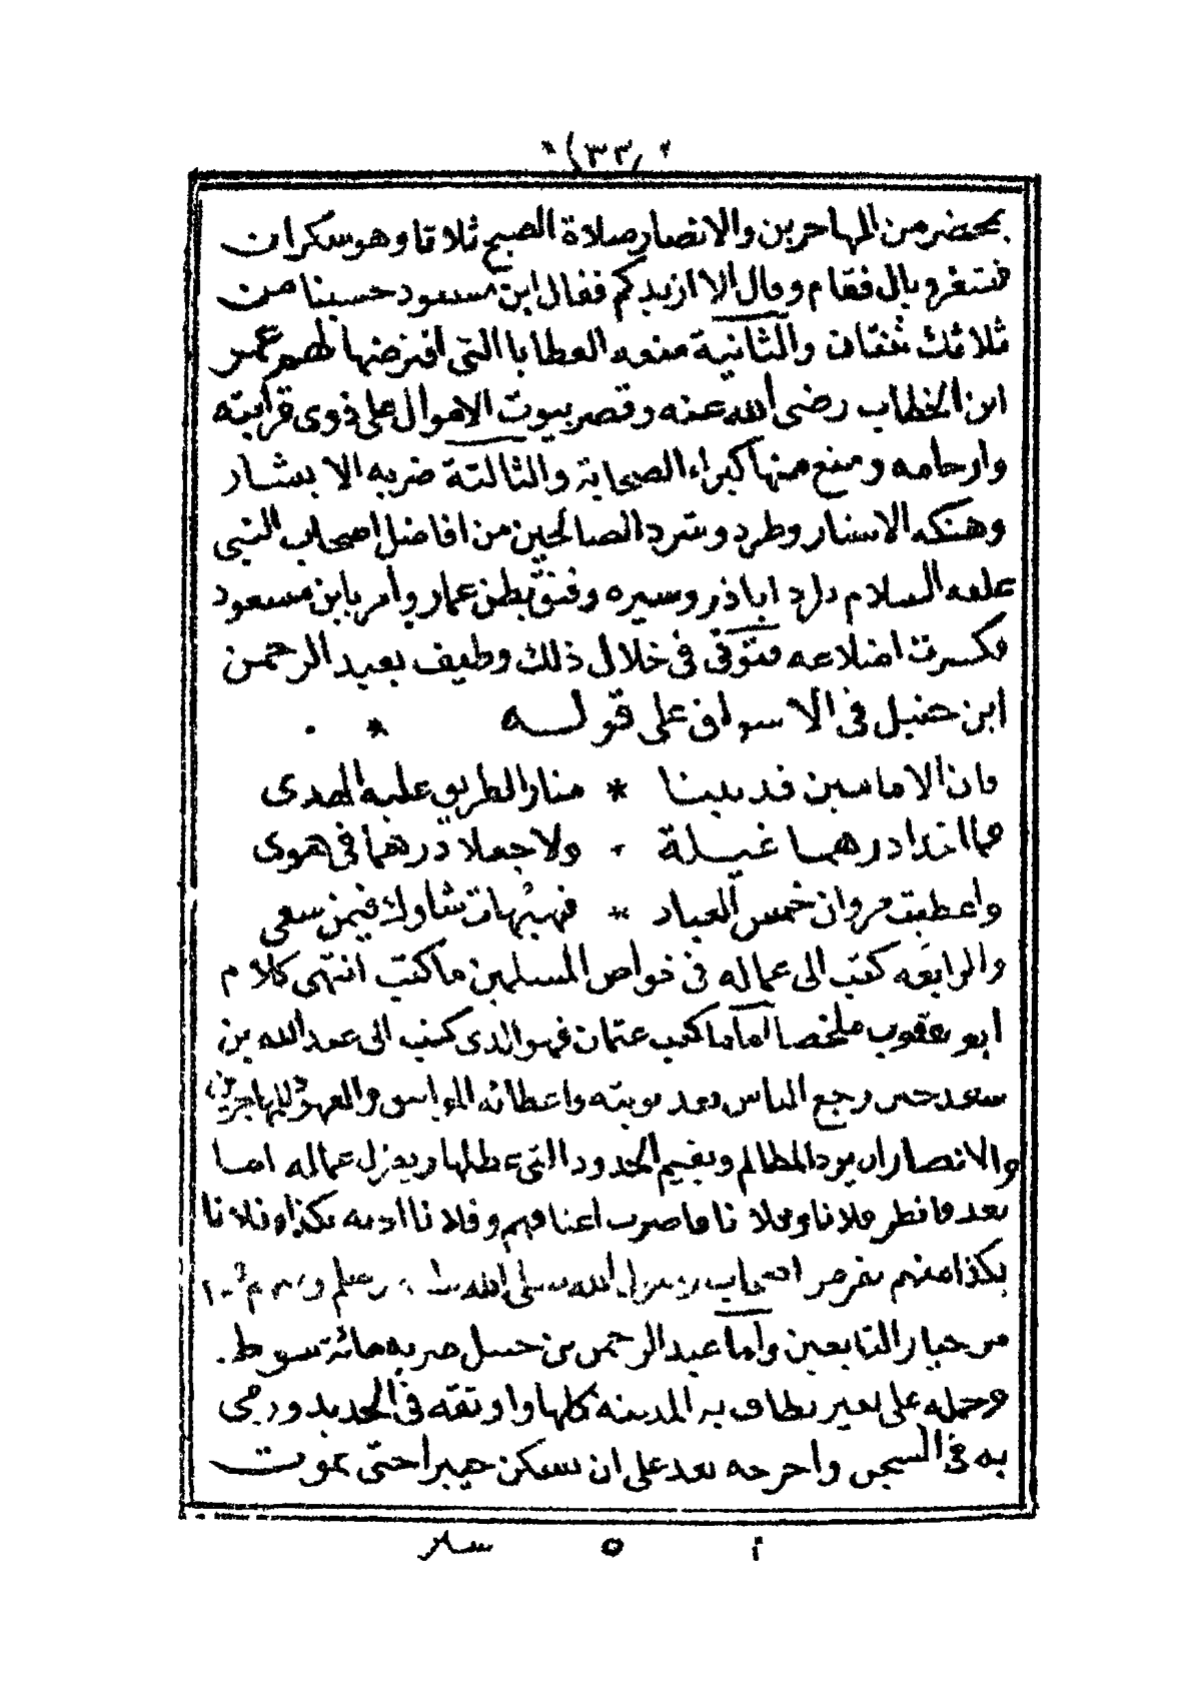 (٣٣)
بمحضر من المهاجرين والانصار صلاة الصبح ثلاثا وهو سكران
فتغرو بال فقام وقال الا ازيدكم فقال ابن مسعود حسبنا من
ثلاثك ثنتان والثانية منعه العطايا التى افترضها لهم عمر
ابن الخطاب رضى الله عنه وقصر بيوت الاموال على ذوى قرابته
وارحامه ومنع منها كبراء الصحابة والثالثة ضربه الابشار
وهتكه الاستار وطرد وشرد الصالحين من افاضل اصحاب النبى
عليه السلام اباذر وسيره وفتق بطن عمار وامر بابن مسعود
فكسرت اضلاعه فتوفى فى خلال ذلك وطيف بعبد الرحمن
ابن حنبل فى الاسواق على قوله *
فان الامامين قد بينا * منار الطريق عليه الهدى
فما اخذا درهما غيلة * ولا جعلا درهما فى هوى
واعطيت مروان خمس العباد * فهيهات شاوك فيمن سعى
والرابعه كتب الى عماله فى خواص المسلمين ما كتب انتهى كلام
ابو يعقوب ملخصا اما ما كتب عثمان فهو الذى كتب الى عبد الله بن
سعد حين رجع الناس بعد توبته واعطائه المواسى والعهود للمهاجرين
والانصار ان يرد المظالم ويقيم الحدود التى عطلها ويعزل عماله اما
بعد فانظر فلانا وفلانا فاضرب اعناقهم وفلانا ادبه بكذا وفلانا
بكذا منهم نفر من اصحاب رسول الله صلى الله عليه وسلم ومنهم
من خيار التابعين واما عبد الرحمن بن حنبل ضربه مائة سوط.
وحمله على بعير يطاف به المدينة كلها واوثقه فى الحديد ورمى
به فى السجن واخرجه بعد على ان يسكن خيبرا حتى يموت